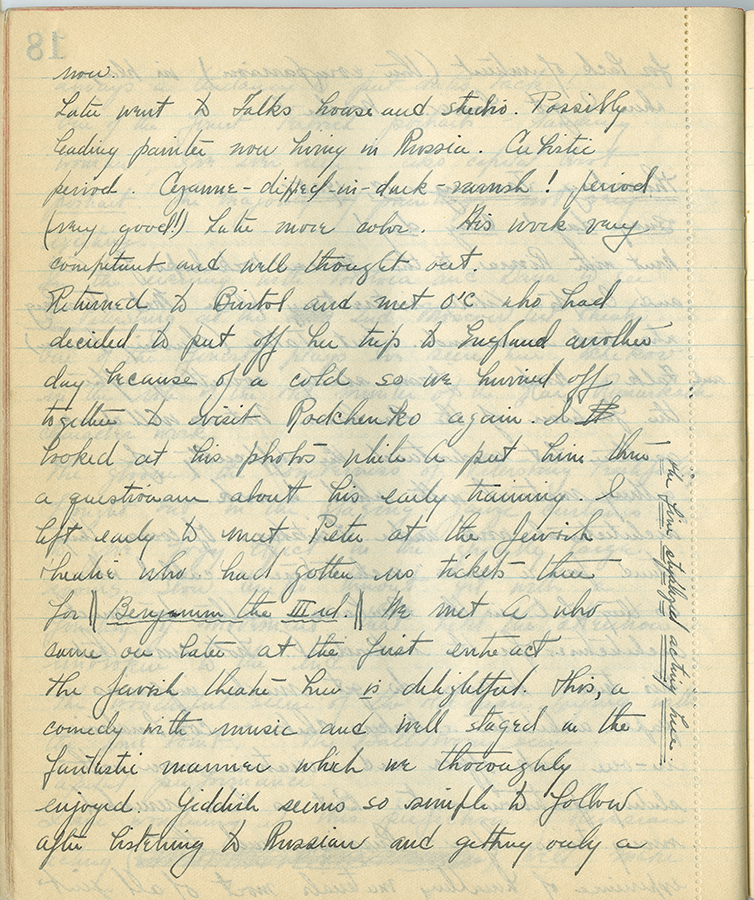 now.
Later went to Falks house and studio. Possibly
leading painter now living in Russia. Cubistic
period. Cezanne-dipped-in-dark-varnish! period
(very good!) Later more color. His work very
competent and well thought out.
Returned to Bristol and met O'C who had
decided to put off her trip to England another
day because of a cold so we hurried off
together to visit Rodchenko again. I
looked at his photos while A put him thru
a questionaire about his early training. I
left early to meet Peter at the Jewish
theatre who had gotten us tickets there
for "Benjamin the IIIrd." We met A who
came on later at the first entreact
The Jewish theatre here is delightful. This, a
comedy with music and well staged in the
fantastic manner which we thoroughly
enjoyed. Yiddish seems so simple to follow
after listening to Russian and getting only a
the fine stylized acting here.
18